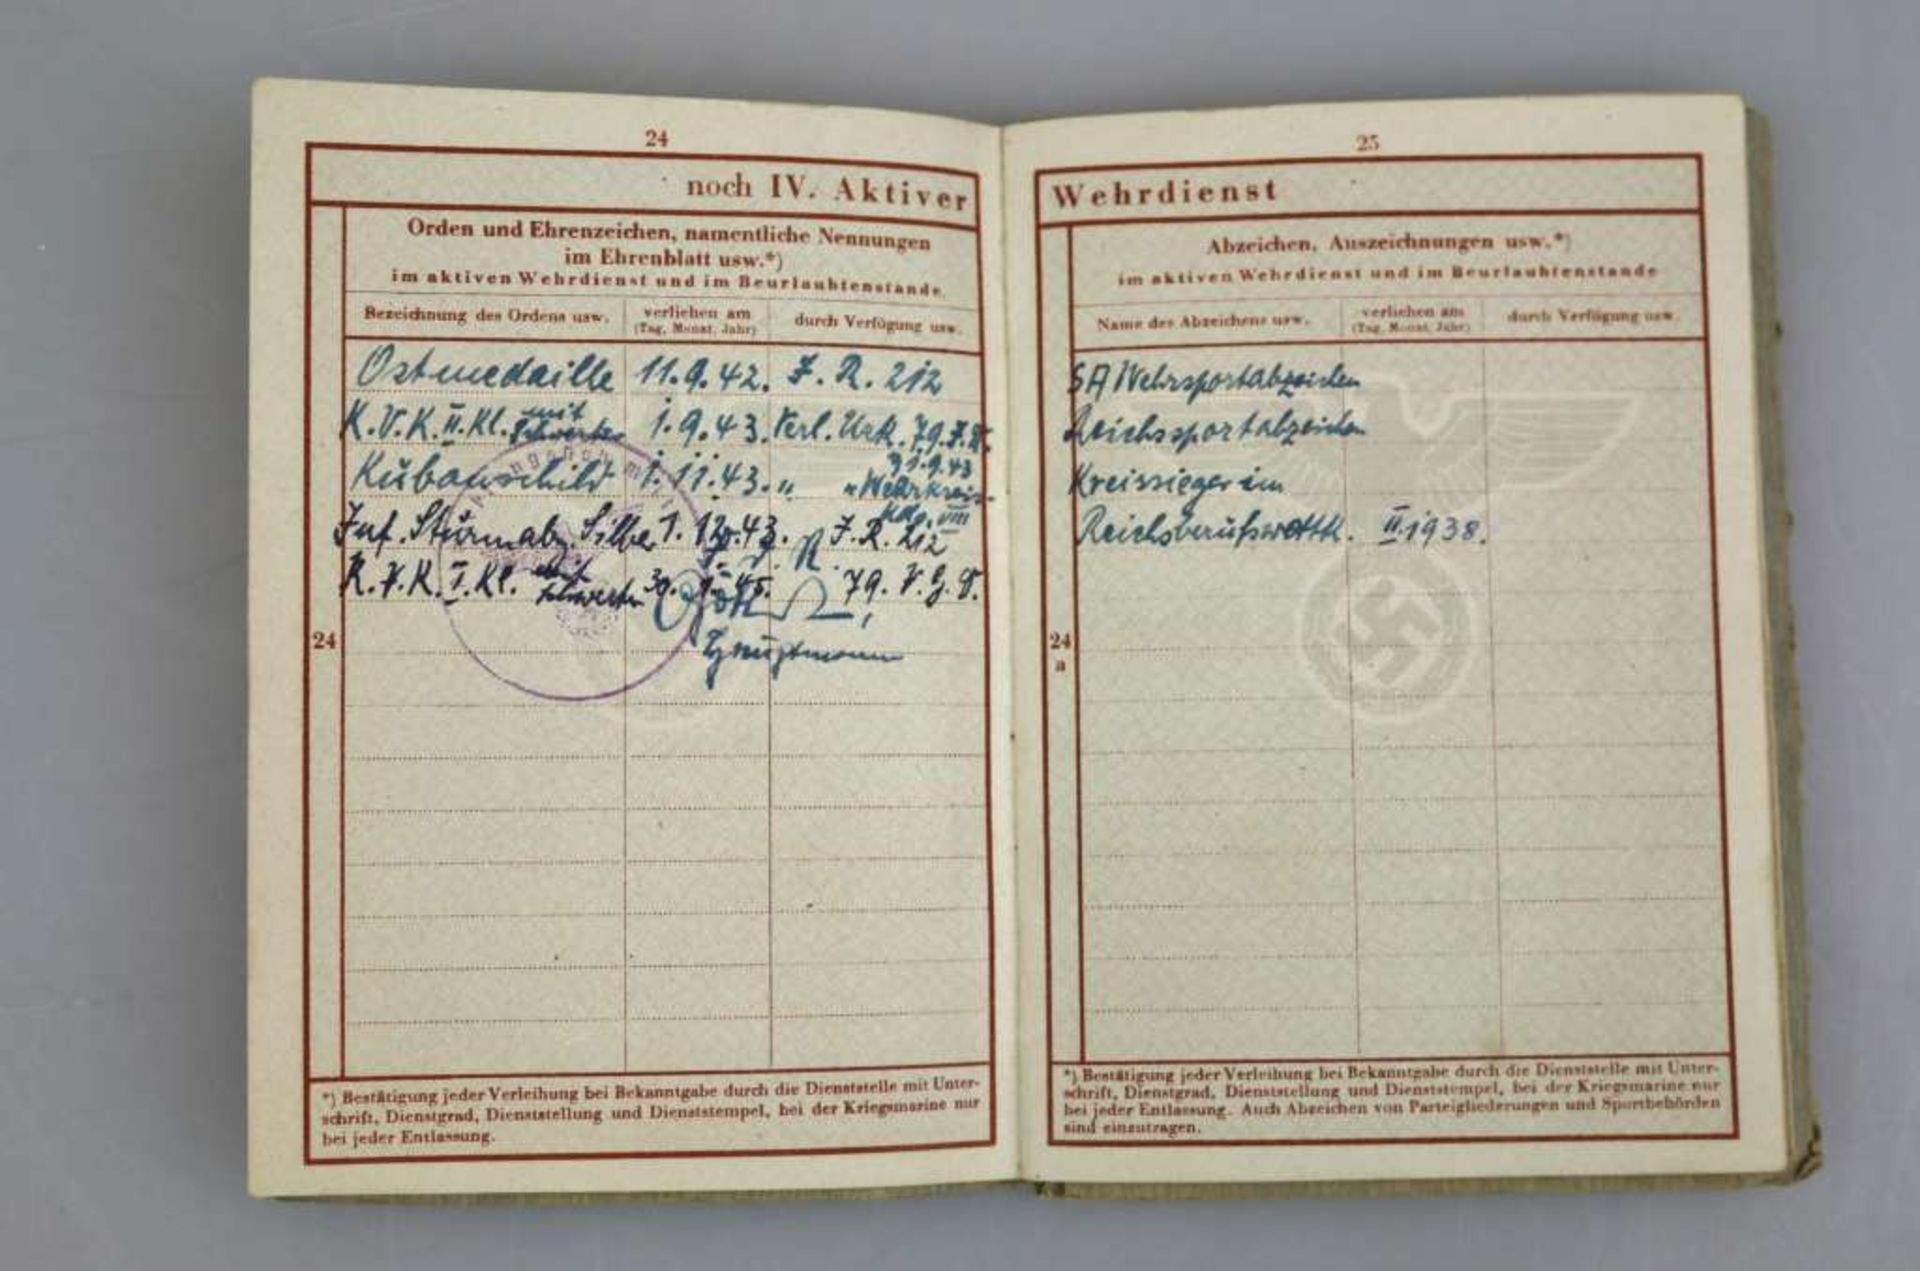 24
noch IV. Aktiver
Orden und Ehrenzeichen, namentliche Nennungen
im Ehrenblatt usw.*)
im aktiven Wehrdienst und im Beurlaubtenstande
Bezeichnung des Ordens usw. verliehen am (Tag, Monat, Jahr) durch Verfügung usw.
Ostmedaille 11.9.42. J. R. 212
K.V.K. II. Kl. mit Schwerter 1.9.43. Verl. Urk. 79. J.D.
1.9.43
Kubanschild 1.11.43. " " Wehrkreis-
Kdo. VIII
Inf. Sturmabz. Silber 1.12.43. J. R. 212
K.V.K. I. Kl. mit Schwerter 30. 1. 45. 79. V. G. D.
Hauptmann
24
*) Bestätigung jeder Verleihung bei Bekanntgabe durch die Dienststelle mit Unter-
schrift, Dienstgrad, Dienststellung und Dienststempel, bei der Kriegsmarine nur
bei jeder Entlassung.
25
Wehrdienst
Abzeichen, Auszeichnungen usw.*)
im aktiven Wehrdienst und im Beurlaubtenstande
Name des Abzeichens usw. verliehen am (Tag, Monat, Jahr) durch Verfügung usw.
SA Wehrsportabzeichen
Reichssportabzeichen
Kreissieger im
Reichsberufswettk. II. 1938.
24
a
*) Bestätigung jeder Verleihung bei Bekanntgabe durch die Dienststelle mit Unter-
schrift, Dienstgrad, Dienststellung und Dienststempel, bei der Kriegsmarine nur
bei jeder Entlassung. Auch Abzeichen von Parteigliederungen und Sportbehörden
sind einzutragen.